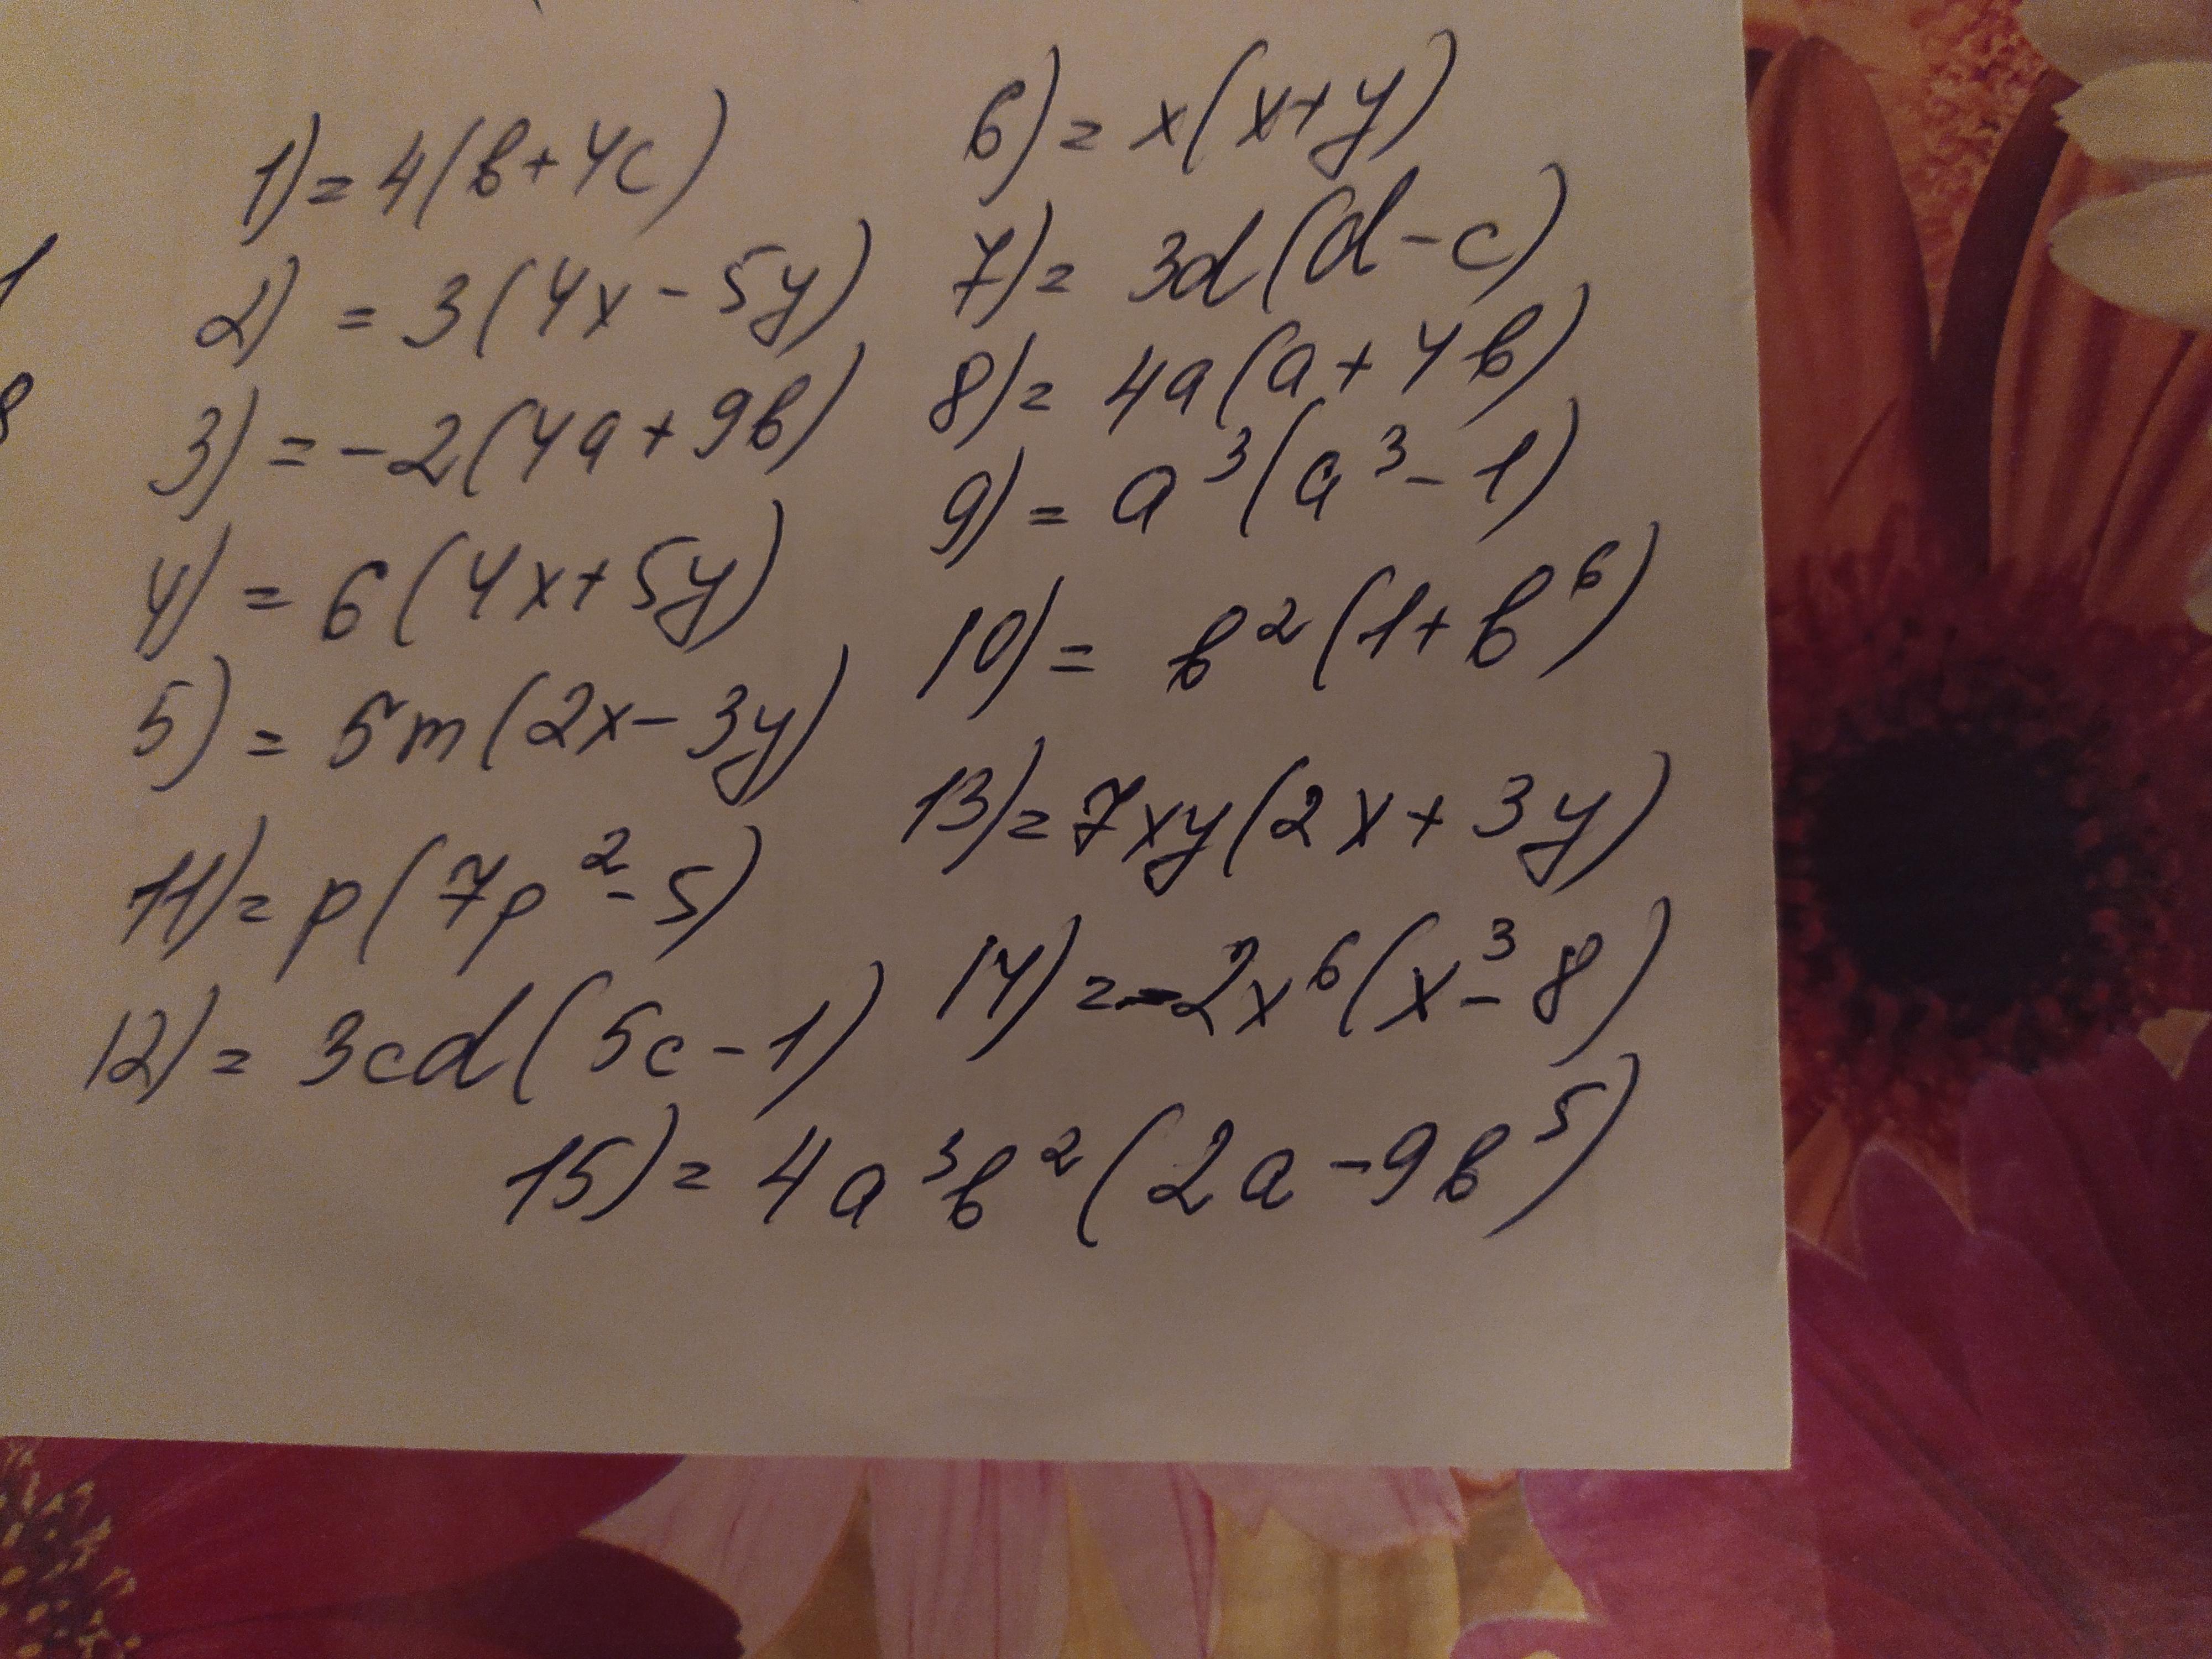 1) = 4(b+4c)
2) = 3(4x-5y)
3) = -2(4a+9b)
4) = 6(4x+5y)
5) = 5m(2x-3y)
11) = p(7p²-5)
12) = 3cd(5c-1)
6) = x(x+y)
7) = 3d(d-c)
8) = 4a(a+4b)
9) = a³(a³-1)
10) = b²(1+b⁶)
13) = 7xy(2x+3y)
14) = -2x⁶(x³-8)
15) = 4a³b²(2a-9b⁵)